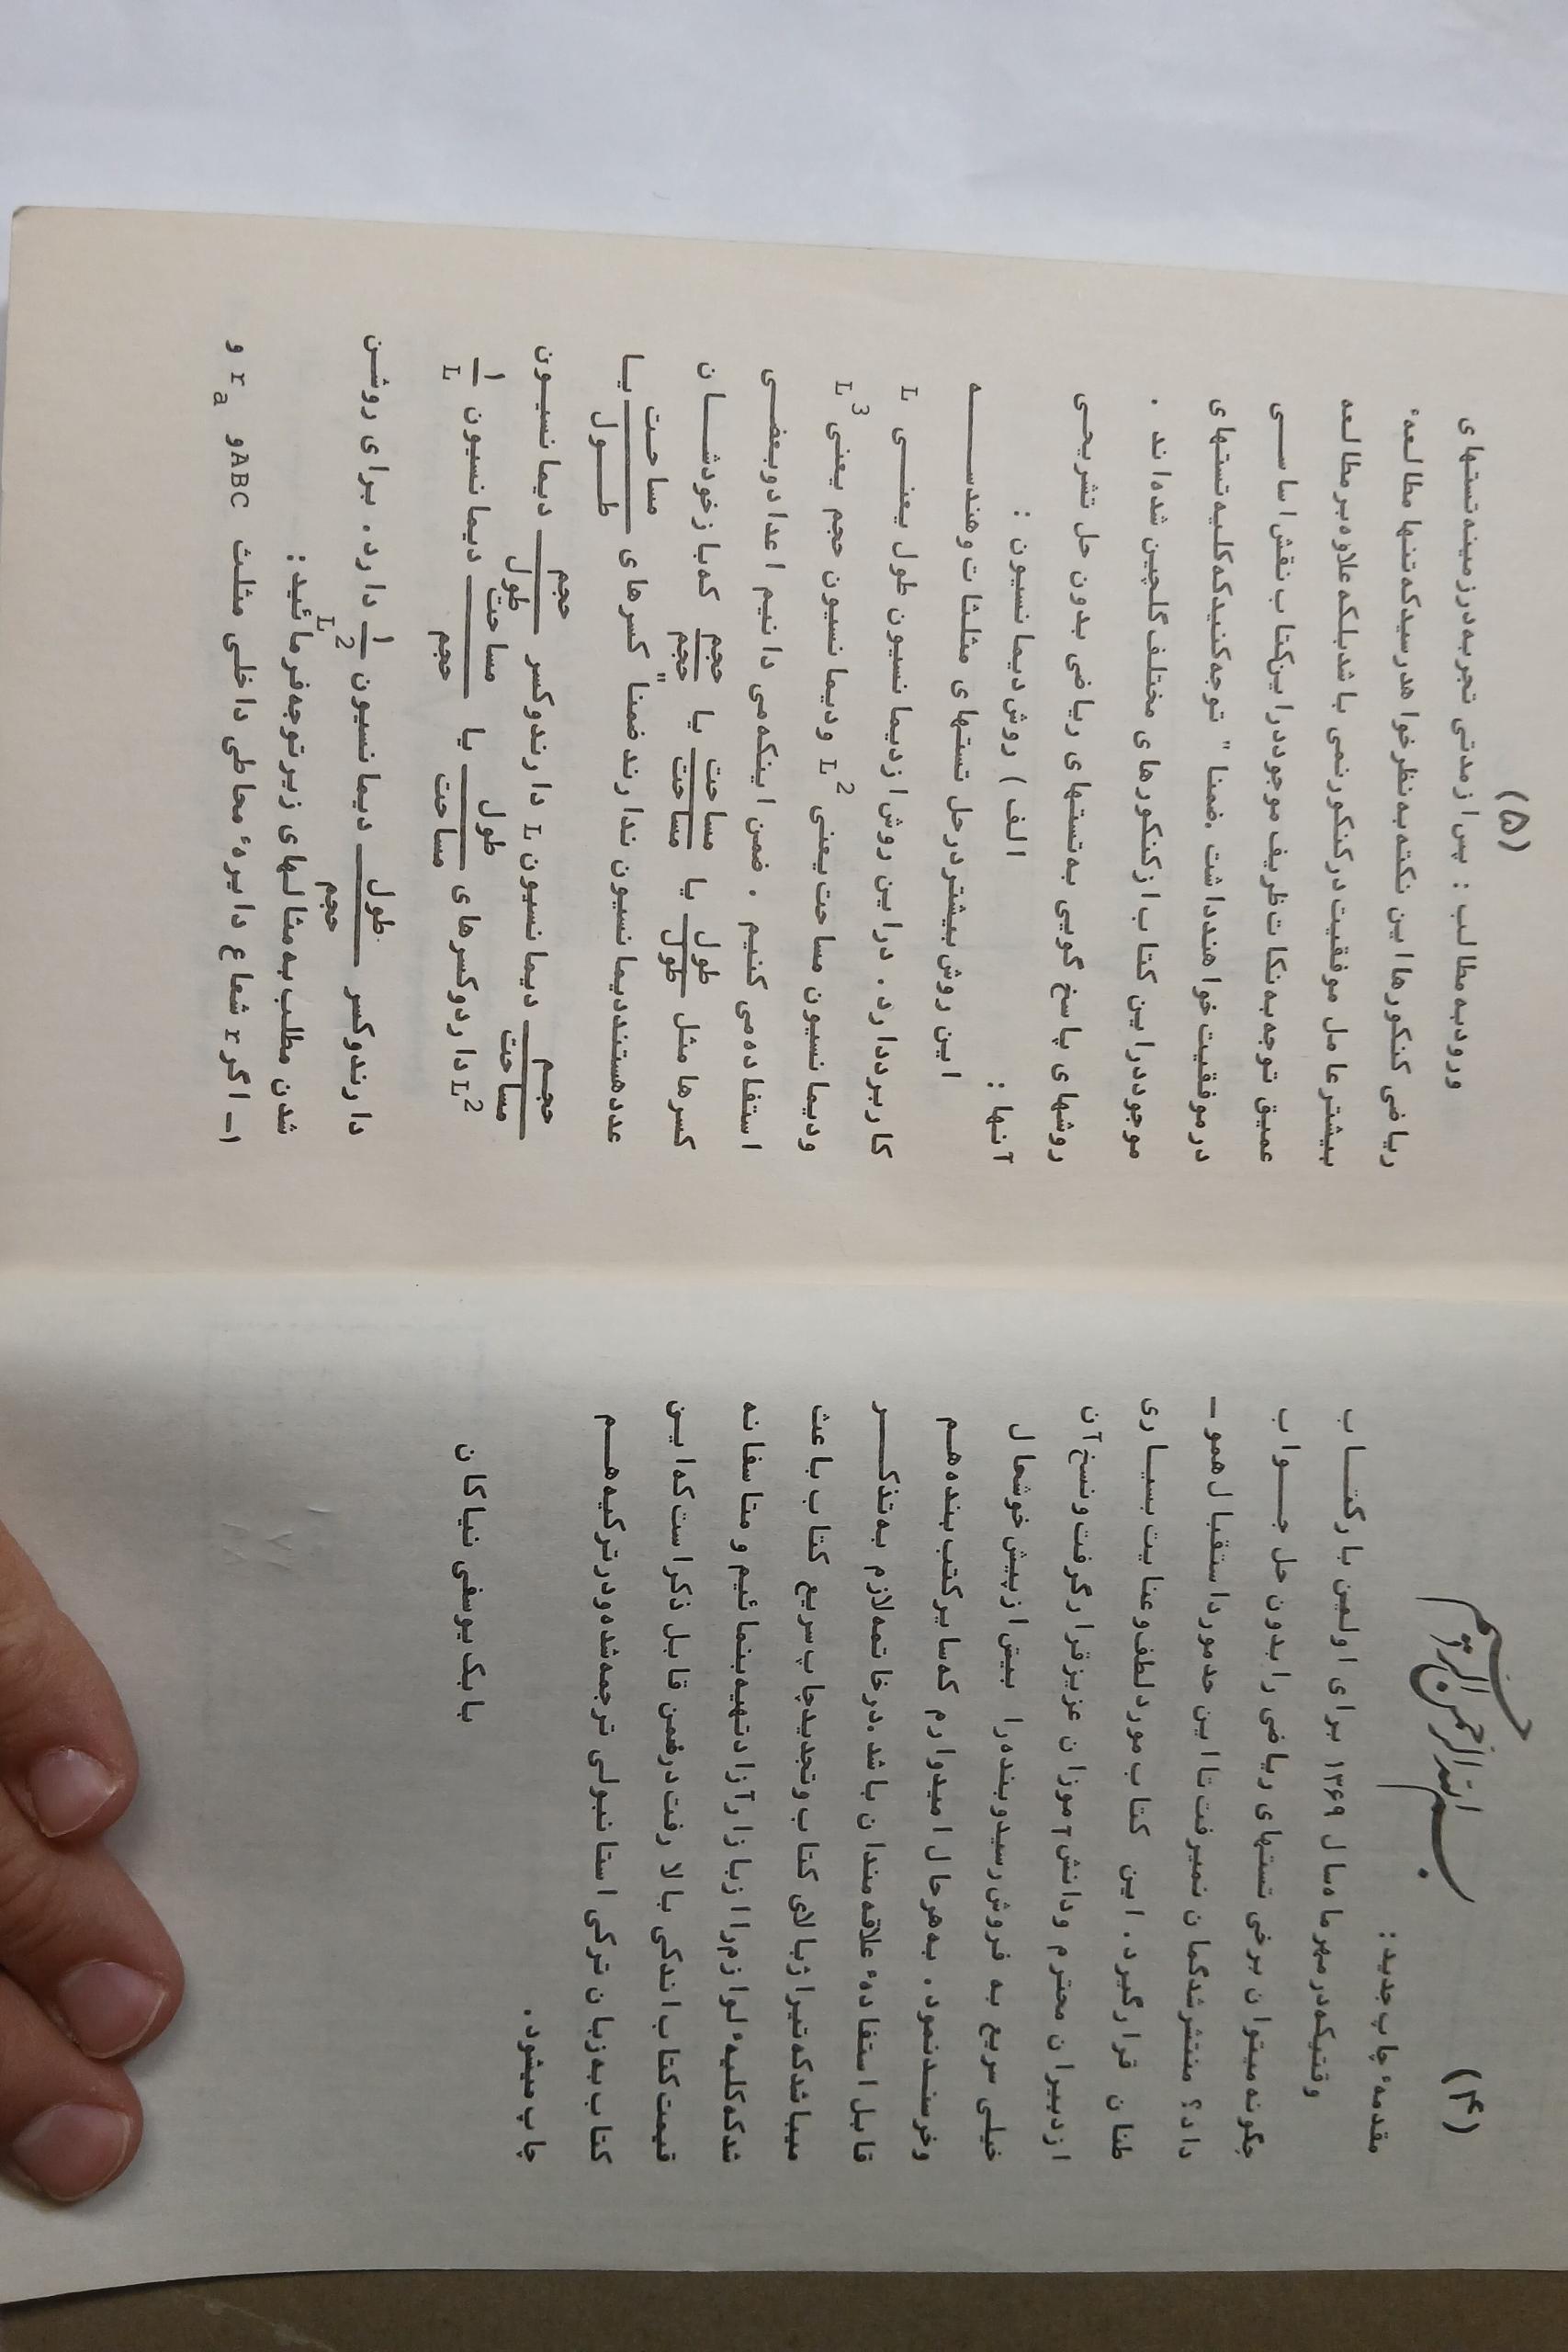 (۴)
بسم الله الرحمن الرحیم
مقدمهٔ چاپ جدید:
وقتیکه در مهرماه سال ۱۳۶۹ برای اولین بار کتاب
چگونه میتوان برخی تستهای ریاضی را بدون حل جواب
داد؟ منتشر شد گمان نمیرفت تا این حد مورد استقبال همو-
طنان قرار گیرد. این کتاب مورد لطف و عنایت بسیاری
از دبیران محترم و دانش آموزان عزیز قرار گرفت و نسخ آن
خیلی سریع به فروش رسید و بنده را بیش از پیش خوشحال
و خرسند نمود. به هر حال امیدوارم که سایر کتب بنده هم
قابل استفادهٔ علاقه مندان باشد. در خاتمه لازم به تذکر
میباشد که تیراژ بالای کتاب و تجدید چاپ سریع کتاب باعث
شد که کلیهٔ لوازم را از بازار آزاد تهیه بنمائیم و متاسفانه
قیمت کتاب اندکی بالا رفت در ضمن قابل ذکر است که این
کتاب به زبان ترکی استانبولی ترجمه شده و در ترکیه هم
چاپ میشود.
بابک یوسفی نیاکان
(۵)
ورود به مطالب : پس از مدتی تجربه در زمینه تستهای
ریاضی کنکورها این نکته به نظر خواهد رسید که تنها مطالعهٔ
بیشتر عامل موفقیت در کنکور نمی باشد بلکه علاوه بر مطالعه
عمیق توجه به نکات ظریف موجود در این کتاب نقش اساسی
در موفقیت خواهند داشت . ضمنا" توجه کنید که کلیه تستهای
موجود در این کتاب از کنکورهای مختلف گلچین شده اند .
روشهای پاسخ گویی به تستهای ریاضی بدون حل تشریحی
آنها : الف) روش دیمانسیون :
این روش بیشتر در حل تستهای مثلثات و هندسه
کاربرد دارد. در این روش از دیمانسیون طول یعنی L
و دیمانسیون مساحت یعنی L² و دیمانسیون حجم یعنی L³
استفاده می کنیم . ضمن اینکه می دانیم اعداد و بعضی
کسرها مثل طول/طول یا مساحت/مساحت یا حجم/حجم که باز خودشان
عدد هستند دیمانسیون ندارند ضمنا" کسرهای مساحت/طول یا
حجم/مساحت دیمانسیون L دارند و کسر حجم/طول دیمانسیون
L² دارد و کسرهای طول/مساحت یا مساحت/حجم دیمانسیون ۱/L
دارند و کسر طول/حجم دیمانسیون ۱/L² دارد. برای روشن
شدن مطلب به مثالهای زیر توجه فرمائید:
۱- اگر r شعاع دایرهٔ محاطی داخلی مثلث ABC و rₐ و